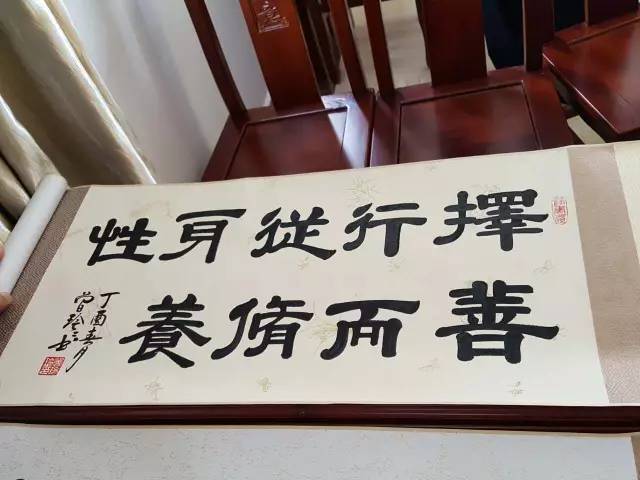 擇善
行而
從脩
身養
性
丁酉春月